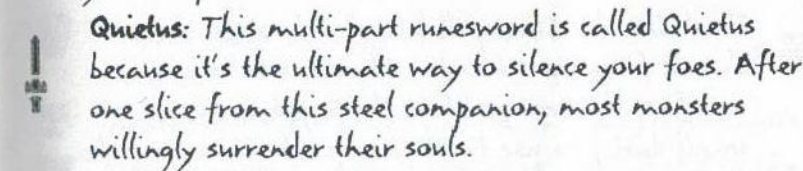 Quietus: This multi-part runesword is called Quietus
because it's the ultimate way to silence your foes. After
one slice from this steel companion, most monsters
willingly surrender their souls.